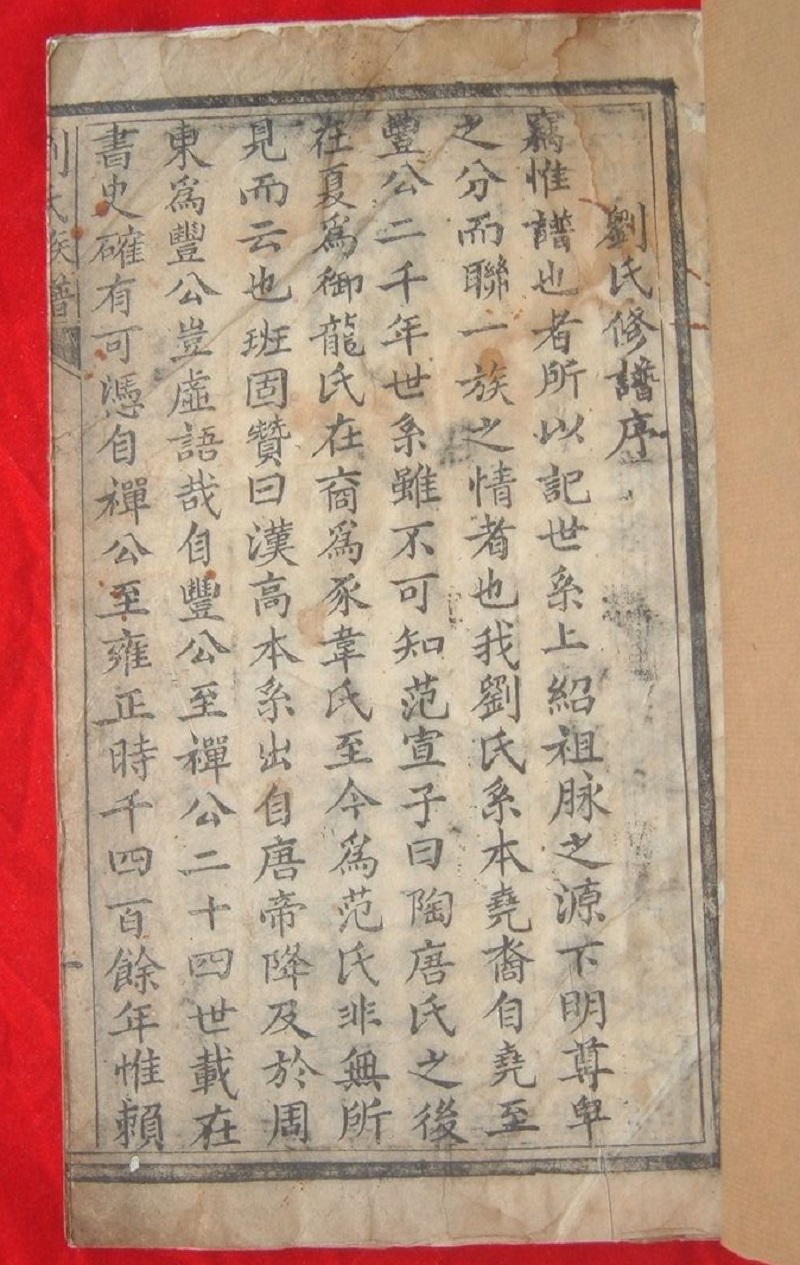 劉氏修譜序
竊惟譜也者所以記世系上紹祖脉之源下明尊卑
之分而聯一族之情者也我劉氏系本堯裔自堯至
豐公二千年世系雖不可知范宣子曰陶唐氏之後
在夏爲御龍氏在商爲豕韋氏至今爲范氏非無所
見而云也班固贊曰漢高本系出自唐帝降及於周
東爲豐公豈虛語哉自豐公至禪公二十四世載在
書史確有可憑自禪公至雍正時千四百餘年惟賴
劉氏族譜